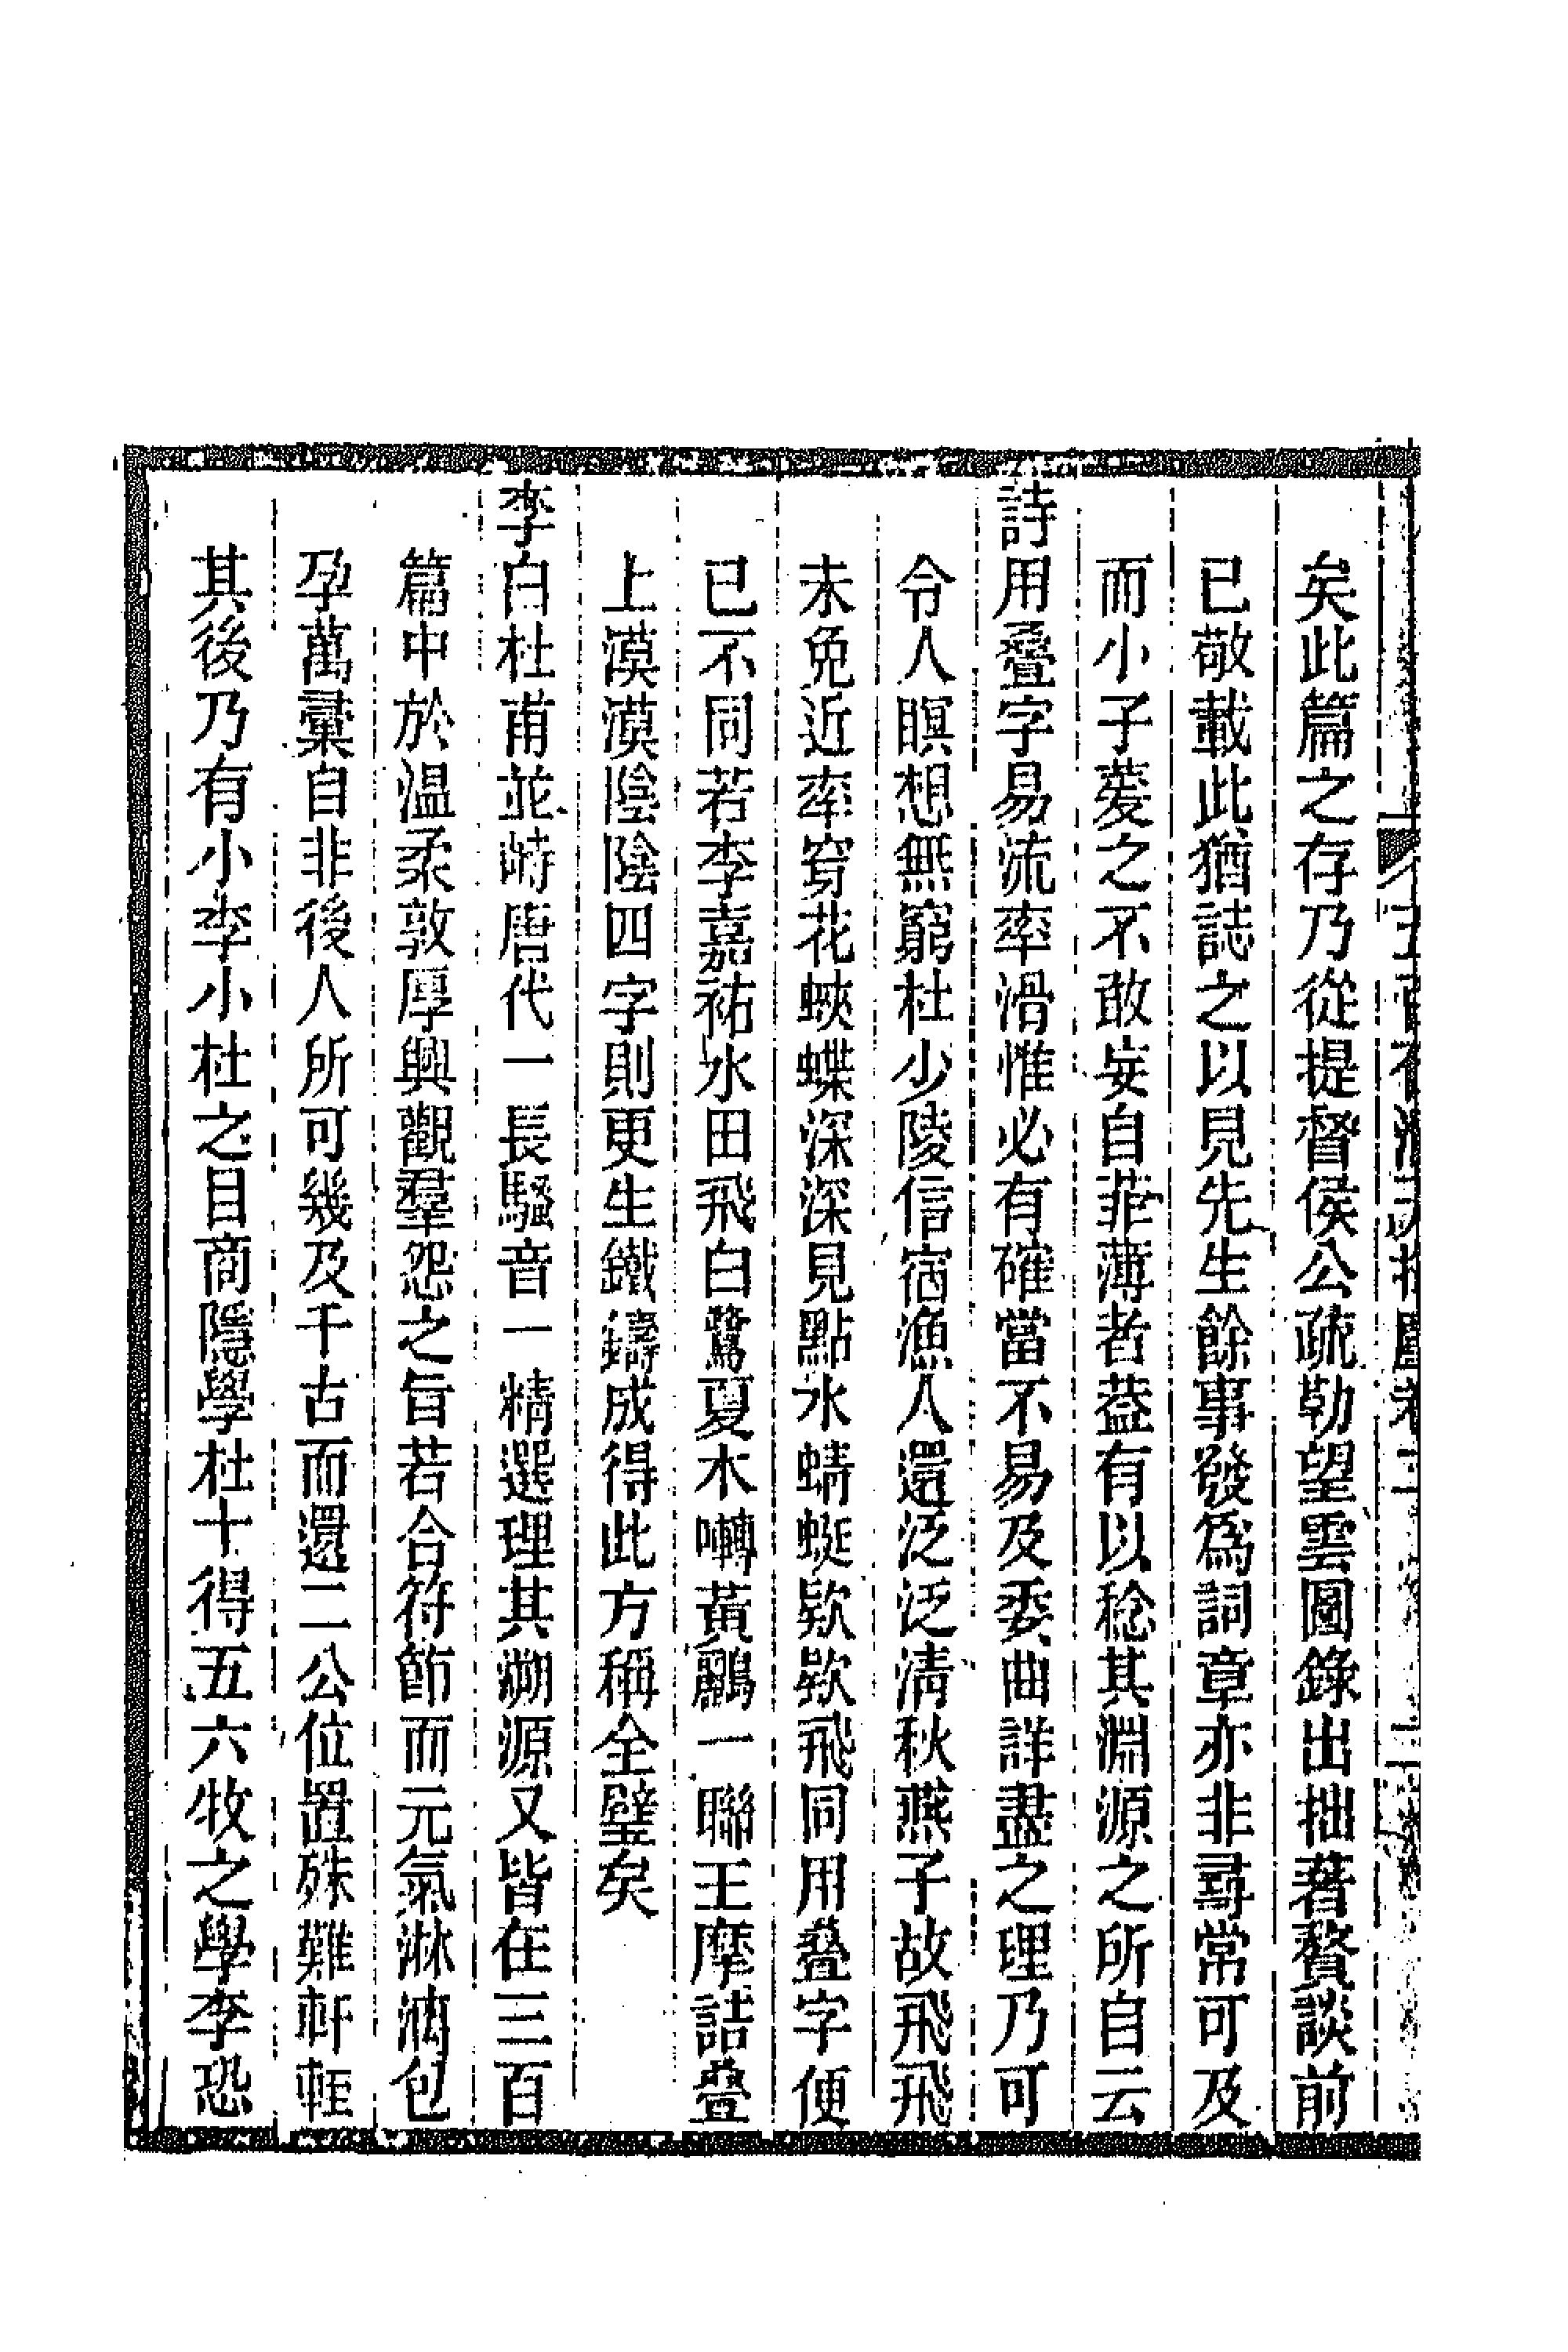 矣此篇之存乃從提督侯公疏勒望雲圖錄出拙著贅談前
已敬載此猶誌之以見先生餘事發爲詞章亦非尋常可及
而小子薆之不敢妄自菲薄者葢有以稔其淵源之所自云
詩用疊字易流率滑惟必有確當不易及委曲詳盡之理乃可
令人瞑想無窮杜少陵信宿漁人還泛泛淸秋燕子故飛飛
未免近率穿花蛺蝶深深見點水蜻蜓欵欵飛同用疊字便
已不同若李嘉祐水田飛白鷺夏木囀黃鸝一聯王摩詰疊
上漠漠陰陰四字則更生鐵鑄成得此方稱全璧矣
李白杜甫並峙唐代一長騷音一精選理其溯源又皆在三百
篇中於温柔敦厚興觀羣怨之旨若合符節而元氣淋漓包
孕萬彙自非後人所可幾及千古而還二公位置殊難軒輊
其後乃有小李小杜之目商隱學杜十得五六牧之學李恐